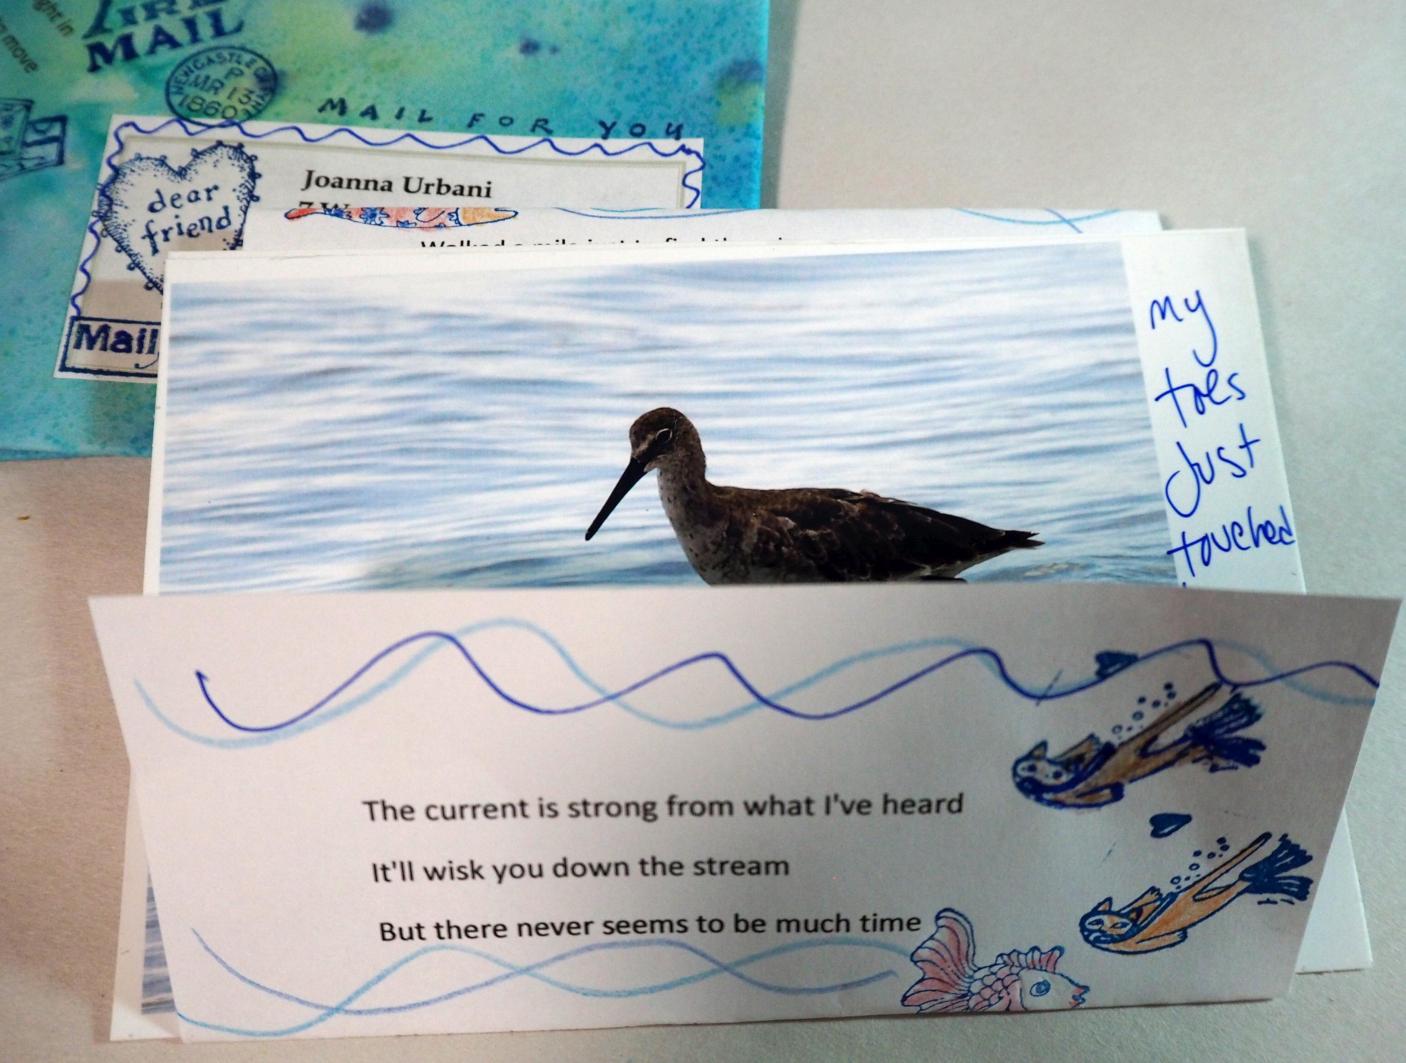 ght in
move
MAIL
NEWCASTLE
P
MR 13
1860
MAIL FOR YOU
dear
friend
Joanna Urbani
Mail
my
toes
Just
touched
The current is strong from what I've heard
It'll wisk you down the stream
But there never seems to be much time